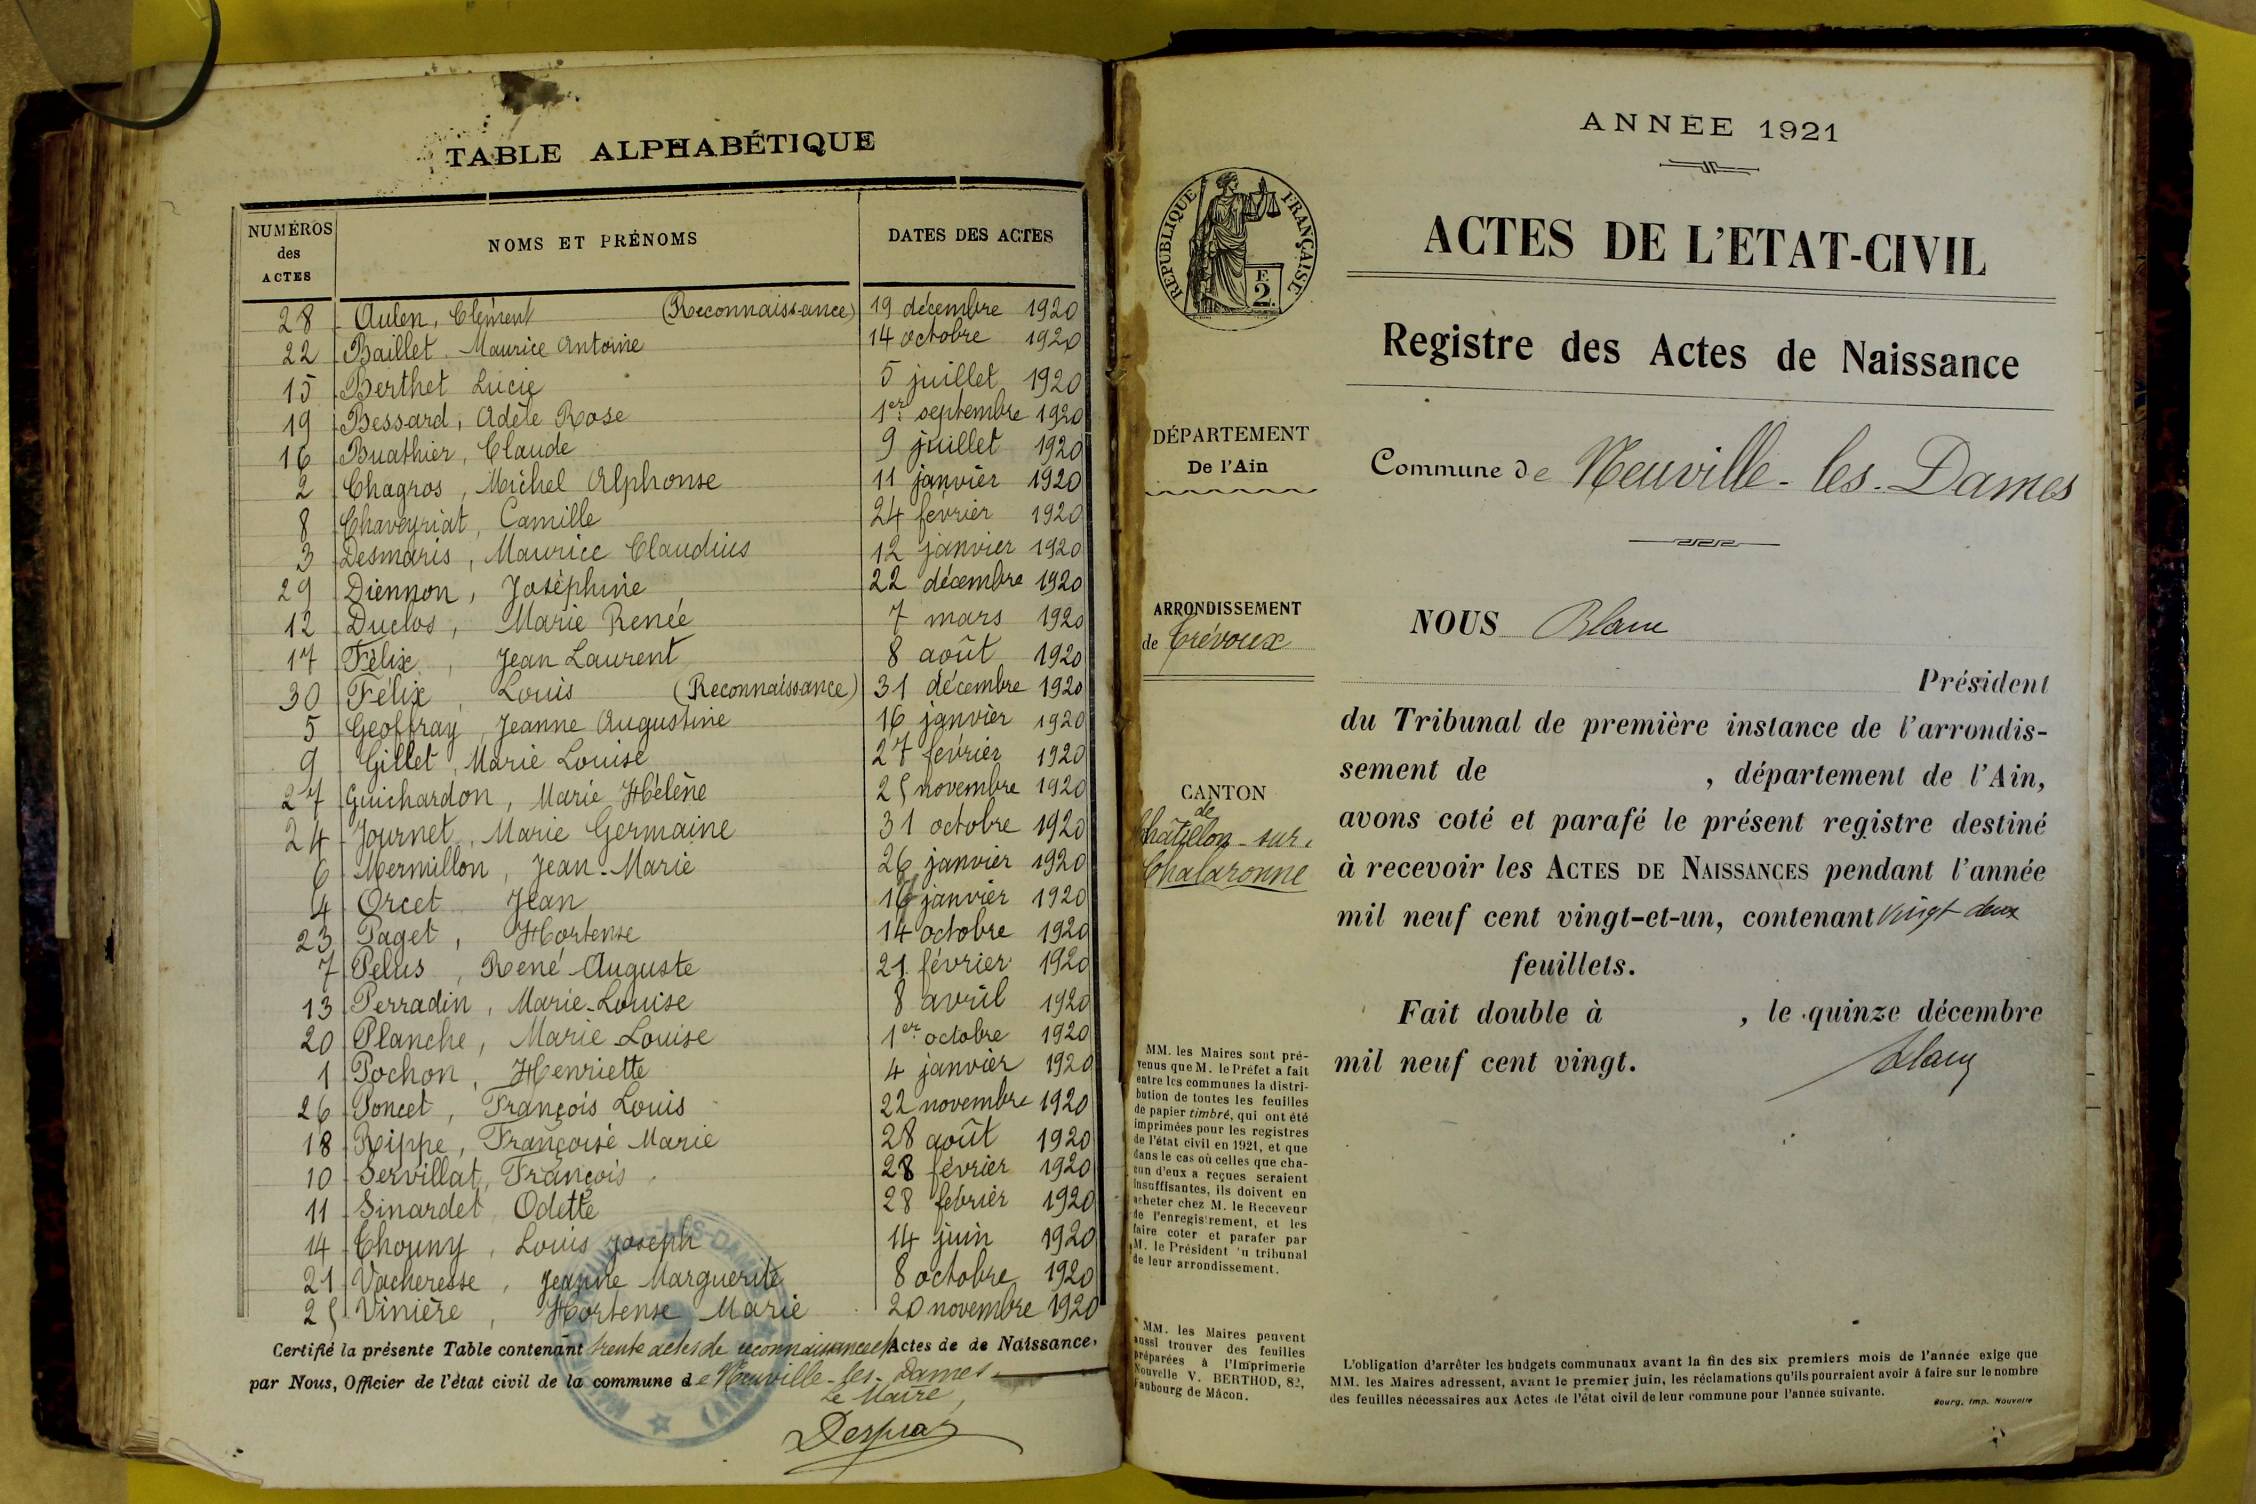 TABLE ALPHABÉTIQUE
NUMÉROS des ACTES NOMS ET PRÉNOMS DATES DES ACTES
28 Aulen, Clément (Reconnaissance) 19 décembre 1920
22 Baillet Maurice Antoine 14 octobre 1920
15 Berthet Lucie 5 juillet 1920
19 Bessard, Adèle Rose 1er septembre 1920
16 Buathier, Claude 9 juillet 1920
2 Chagros, Michel Alphonse 11 janvier 1920
8 Chaveyriat, Camille 24 février 1920
3 Desmaris, Maurice Claudius 12 janvier 1920
29 Diennon, Joséphine 22 décembre 1920
12 Duclos, Marie Renée 7 mars 1920
17 Félix, Jean Laurent 8 août 1920
30 Félix, Louis (Reconnaissance) 31 décembre 1920
5 Geoffray, Jeanne Augustine 16 janvier 1920
9 Gillet, Marie Louise 27 février 1920
27 Guichardon, Marie Hélène 25 novembre 1920
24 Journet, Marie Germaine 31 octobre 1920
6 Mermillon, Jean-Marie 26 janvier 1920
4 Orcet Jean 16 janvier 1920
23 Paget, Hortense 14 octobre 1920
7 Pelus, René Auguste 21 février 1920
13 Perradin, Marie-Louise 8 avril 1920
20 Planche, Marie Louise 1er octobre 1920
1 Pochon, Henriette 4 janvier 1920
26 Poncet, François Louis 22 novembre 1920
18 Rippe, Françoise Marie 28 août 1920
10 Servillat, François 28 février 1920
11 Sinardet Odette 28 février 1920
14 Thouny, Louis Joseph 14 juin 1920
21 Vacheresse, Jeanne Marguerite 8 octobre 1920
25 Vinière, Hortense Marie 20 novembre 1920
Certifié la présente Table contenant trente actes de reconnaissance et Actes de de Naissance,
par Nous, Officier de l'état civil de la commune de Neuville-les-Dames
Le Maire,
ANNÉE 1921
RÉPUBLIQUE FRANÇAISE
E 2
ACTES DE L'ETAT-CIVIL
Registre des Actes de Naissance
DÉPARTEMENT
De l'Ain
Commune de Neuville-les-Dames
ARRONDISSEMENT
de Trévoux
NOUS Blanc
Président
du Tribunal de première instance de l'arrondis-
sement de , département de l'Ain,
avons coté et parafé le présent registre destiné
à recevoir les ACTES DE NAISSANCES pendant l'année
mil neuf cent vingt-et-un, contenant vingt deux
feuillets.
Fait double à , le quinze décembre
mil neuf cent vingt.
Blanc
CANTON
de
Châtillon-sur-
Chalaronne
MM. les Maires sont pré-
venus que M. le Préfet a fait
entre les communes la distri-
bution de toutes les feuilles
de papier timbré, qui ont été
imprimées pour les registres
de l'état civil en 1921, et que
dans le cas où celles que cha-
cun d'eux a reçues seraient
insuffisantes, ils doivent en
acheter chez M. le Receveur
de l'enregistrement, et les
faire coter et parafer par
M. le Président du tribunal
de leur arrondissement.
MM. les Maires peuvent
aussi trouver des feuilles
préparées à l'Imprimerie
Nouvelle V. BERTHOD, 82,
Faubourg de Mâcon.
L'obligation d'arrêter les budgets communaux avant la fin des six premiers mois de l'année exige que
MM. les Maires adressent, avant le premier juin, les réclamations qu'ils pourraient avoir à faire sur le nombre
des feuilles nécessaires aux Actes de l'état civil de leur commune pour l'année suivante.
Bourg, Imp. Nouvelle